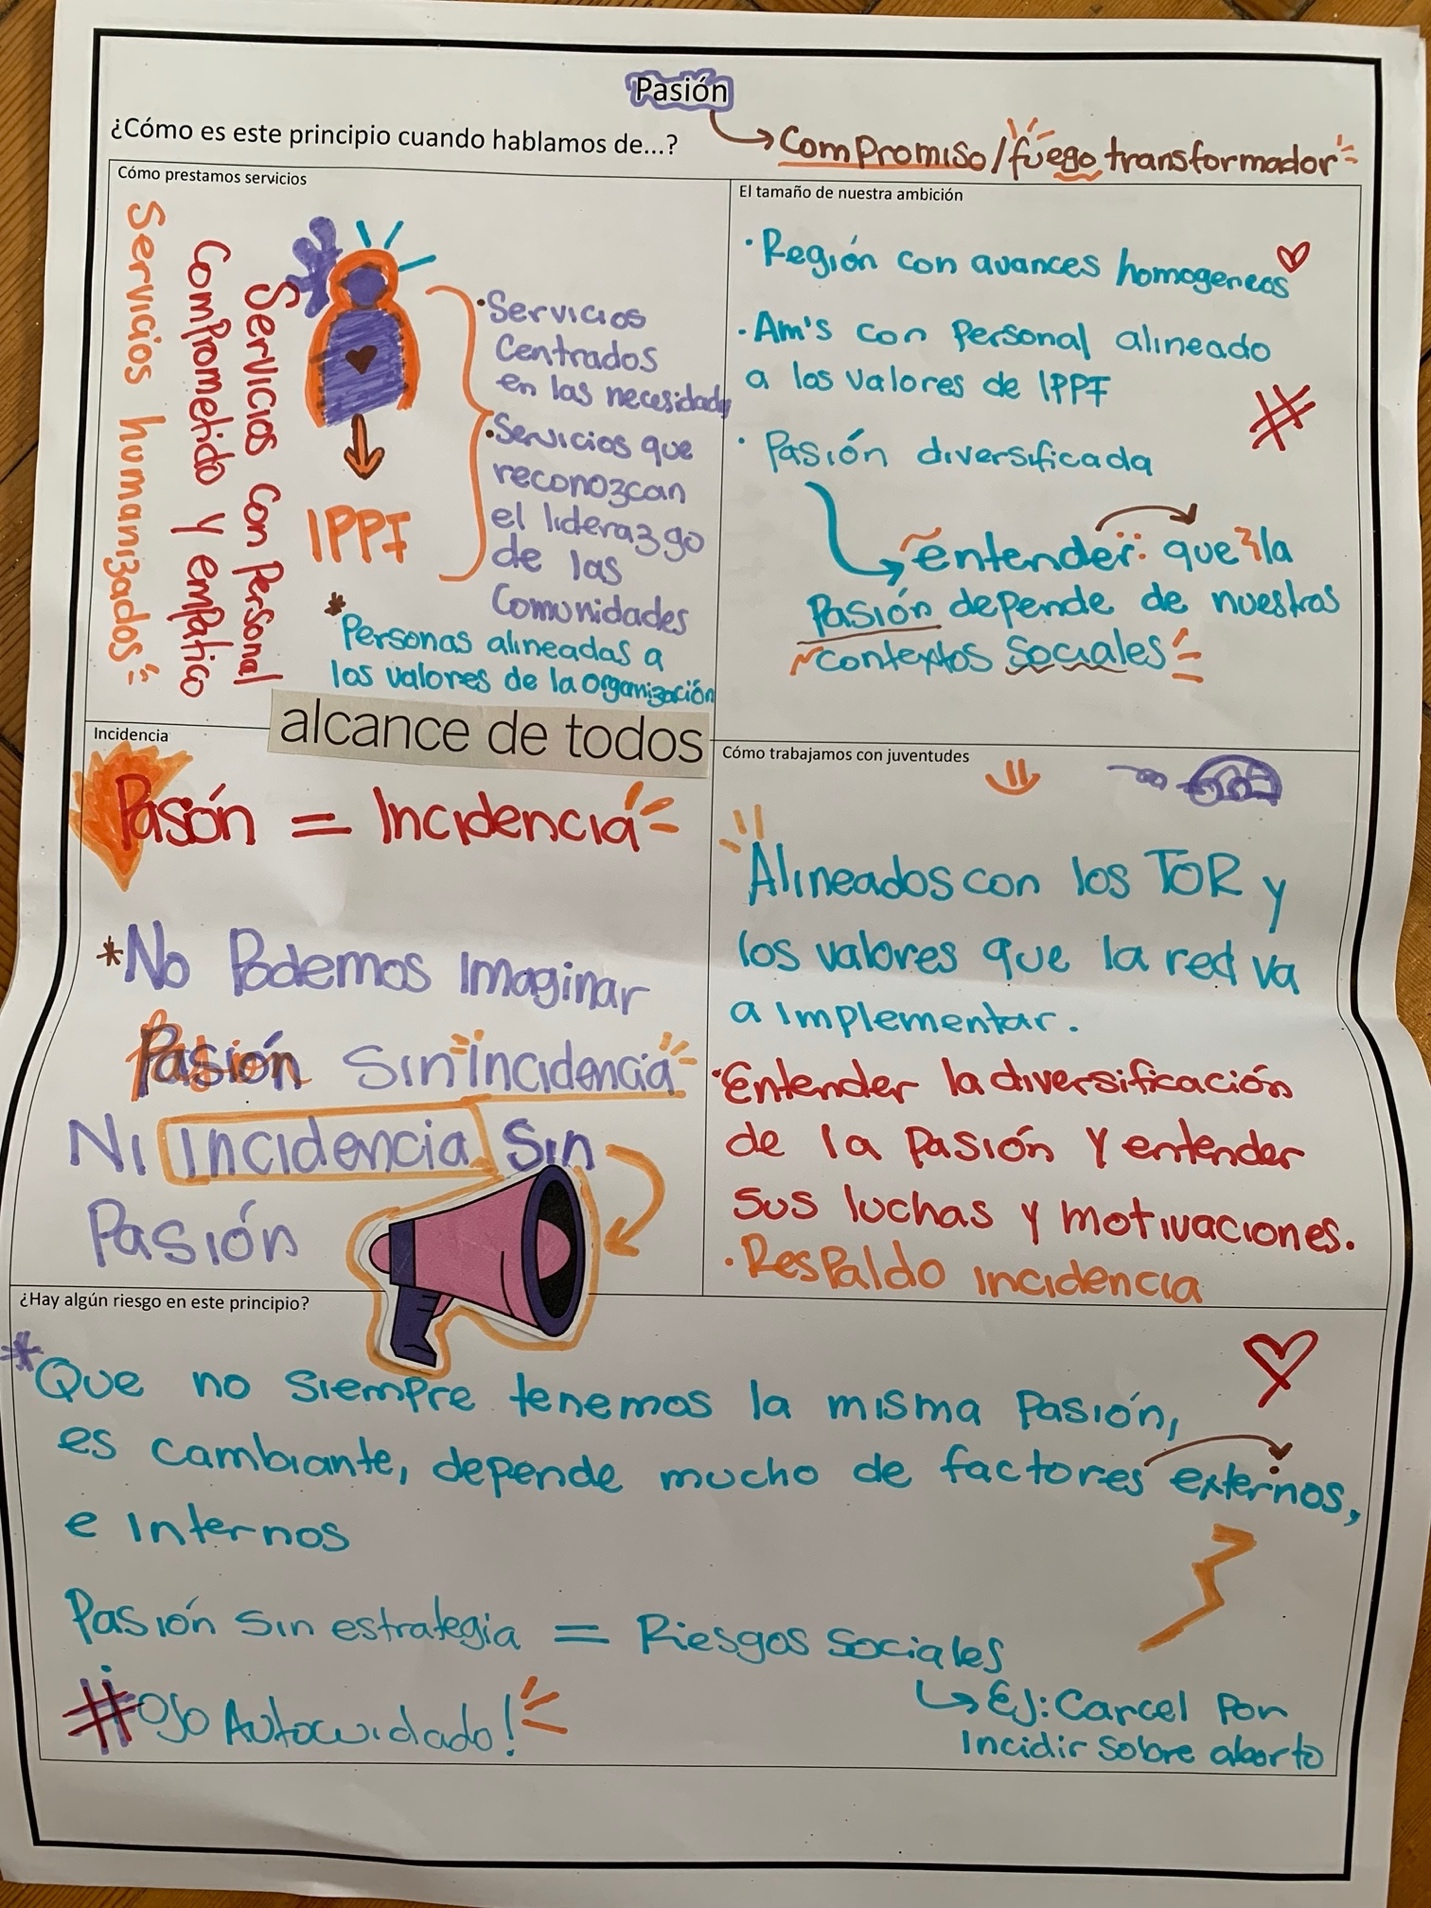 Pasión
¿Cómo es este principio cuando hablamos de...?
Compromiso/fuego transformador
Cómo prestamos servicios
Servicios humanizados
Servicios con Personal
Comprometido y empático
IPPF
·Servicios
Centrados
en las necesidades
·Servicios que
reconozcan
el liderazgo
de las
Comunidades
*Personas alineadas a
los valores de la organización
alcance de todos
El tamaño de nuestra ambición
·Región con avances homogeneos
·Am's con Personal alineado
a los valores de IPPF
·Pasión diversificada
entender: que la
Pasión depende de nuestros
contextos Sociales
Incidencia
Pasón = Incidencia
*No Podemos Imaginar
Pasión Sin incidencia
Ni incidencia Sin
Pasión
Cómo trabajamos con juventudes
Alineados con los TOR y
los valores que la red va
a Implementar.
·Entender la diversificación
de la Pasión y entender
sus luchas y motivaciones.
·Respaldo incidencia
¿Hay algún riesgo en este principio?
*Que no siempre tenemos la misma Pasión,
es cambiante, depende mucho de factores externos,
e Internos
Pasión Sin estrategia = Riesgos Sociales
EJ: Carcel Por
Incidir Sobre aborto
#OJO Autocuidado!